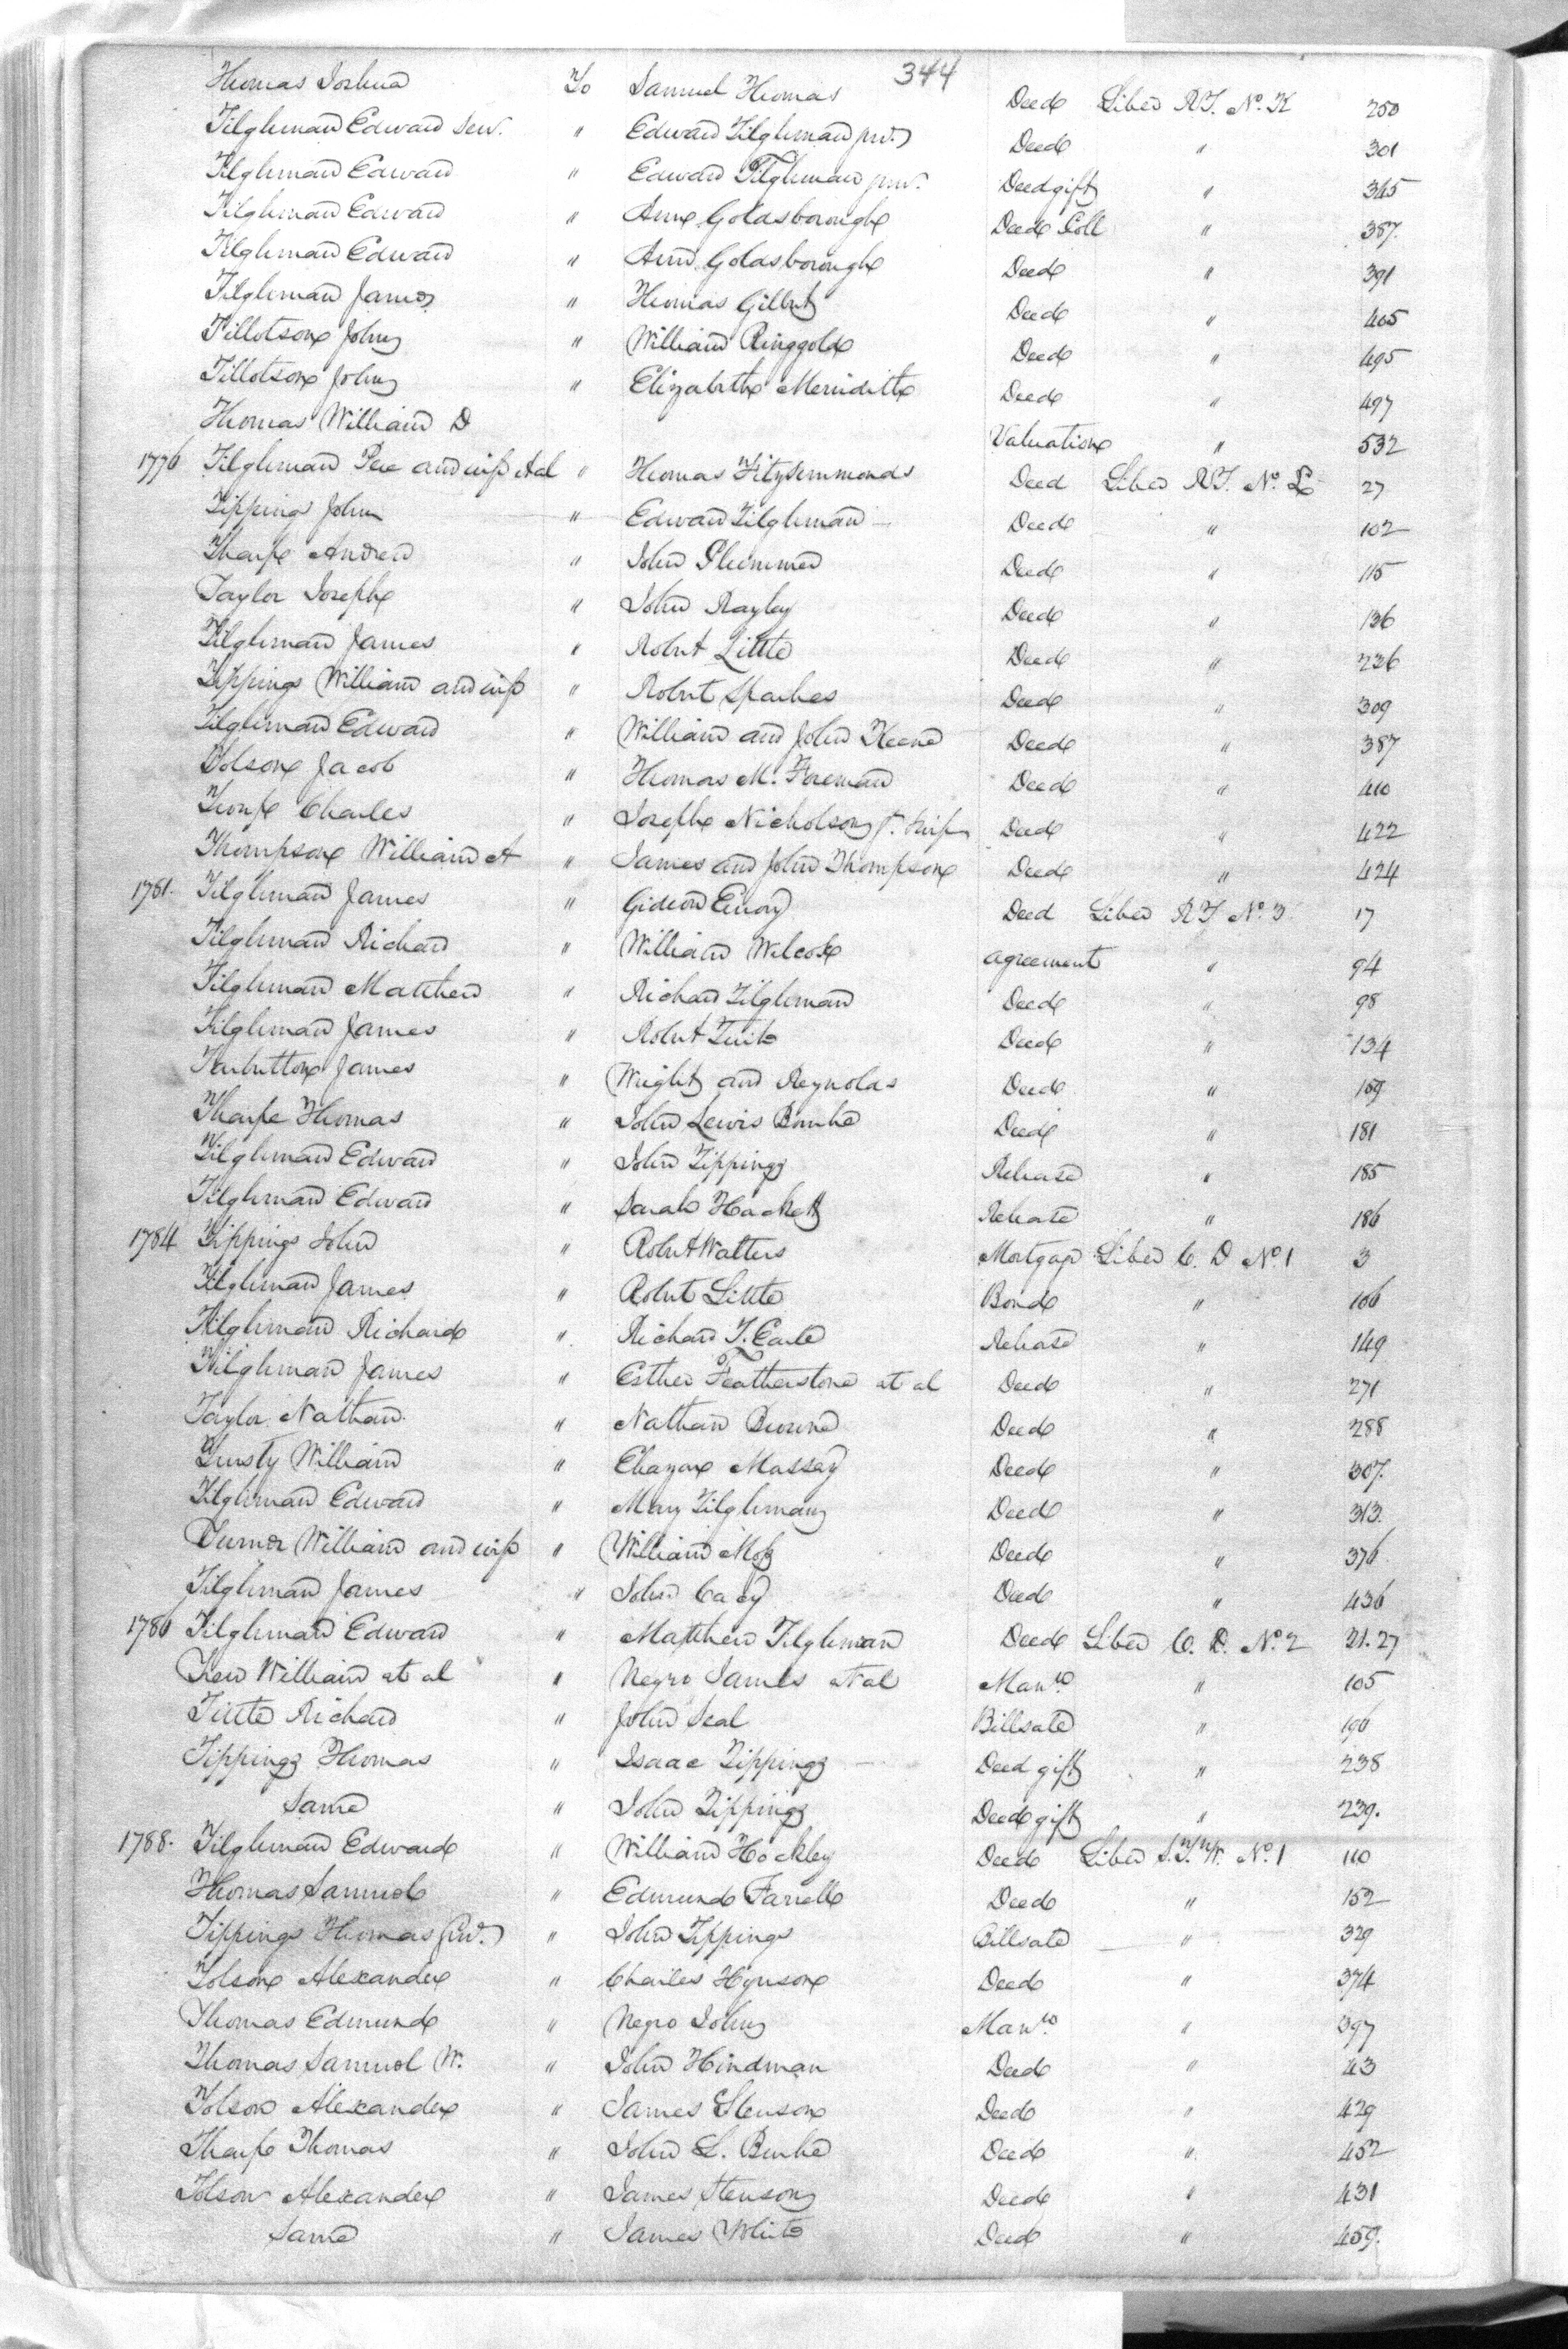 344
Thomas Joshua To Samuel Thomas Deed Liber R.T. No. K 250
Tilghman Edward Sen. " Edward Tilghman jun. Deed " 301
Tilghman Edward " Edward Tilghman jun. Deed gift " 345
Tilghman Edward " Ann Goldsborough Deed Poll " 387
Tilghman Edward " Ann Goldsborough Deed " 391
Tilghman James " Thomas Gilbert Deed " 405
Tillotson John " William Ringgold Deed " 495
Tillotson John " Elizabeth Merridith Deed " 497
Thomas William D Valuation " 532
1776 Tilghman Pere and wife et al " Thomas Fitzsimmonds Deed Liber R.T. No. L 27
Tippings John " Edward Tilghman Deed " 102
Tharp Andrew " John Plummer Deed " 115
Taylor Joseph " John Rayley Deed " 136
Tilghman James " Robert Little Deed " 226
Tippings William and wife " Robert Sparkes Deed " 309
Tilghman Edward " William and John Keene Deed " 387
Tolson Jacob " Thomas M. Foreman Deed " 410
Charles " Joseph Nicholson Deed " 422
Thompson William A " James and John Thompson Deed " 424
1781. Tilghman James " Gideon Emory Deed Liber R.T. No. 17
Tilghman Richard " William Wilcox Agreement " 94
Tilghman Matthew " Richard Tilghman Deed " 98
Tilghman James " Robert Deed " 134
Tarbutton James " Wright and Reynolds Deed " 159
Tharpe Thomas " John Lewis Deed " 181
Tilghman Edward " John Tippings Release " 185
Tilghman Edward " Sarah Hackett Release " 186
1784 Tippings John " Robert Walters Mortgage Liber C. D No. 1 3
Tilghman James " Robert Little Bond " 106
Tilghman Richard " Richard T. Earle Release " 149
Tilghman James " Esther Featherstone et al Deed " 271
Taylor Nathan " Nathan Browne Deed " 288
Trusty William " Massey Deed " 307.
Tilghman Edward " Mary Tilghman Deed " 313.
Turner William and wife " William Deed " 376
Tilghman James " John Deed " 436
1786 Tilghman Edward " Matthew Tilghman Deed Liber C. D. No. 2 21.27
Trew William et al " Negro James et al Man.io " 105
Richard " John Seal Billsale " 196
Tippings Thomas " Isaac Tippings Deed gift " 238
Same " John Tippings Deed gift " 239.
1788. Tilghman Edward " William Hockley Deed Liber S.T.W. No. 1 110
Thomas Samuel " Edmund Farrell Deed " 152
Tippings Thomas Jun. " John Tippings Billsale " 329
Tolson Alexander " Charles Hynson Deed " 374
Thomas Edmund " Negro John Man.io " 397
Thomas Samuel W. " John Hindman Deed " 43
Tolson Alexander " James Stenson Deed " 429
Tharp Thomas " John L. Deed " 452
Tolson Alexander " James Stenson Deed " 431
Same " James White Deed " 459.